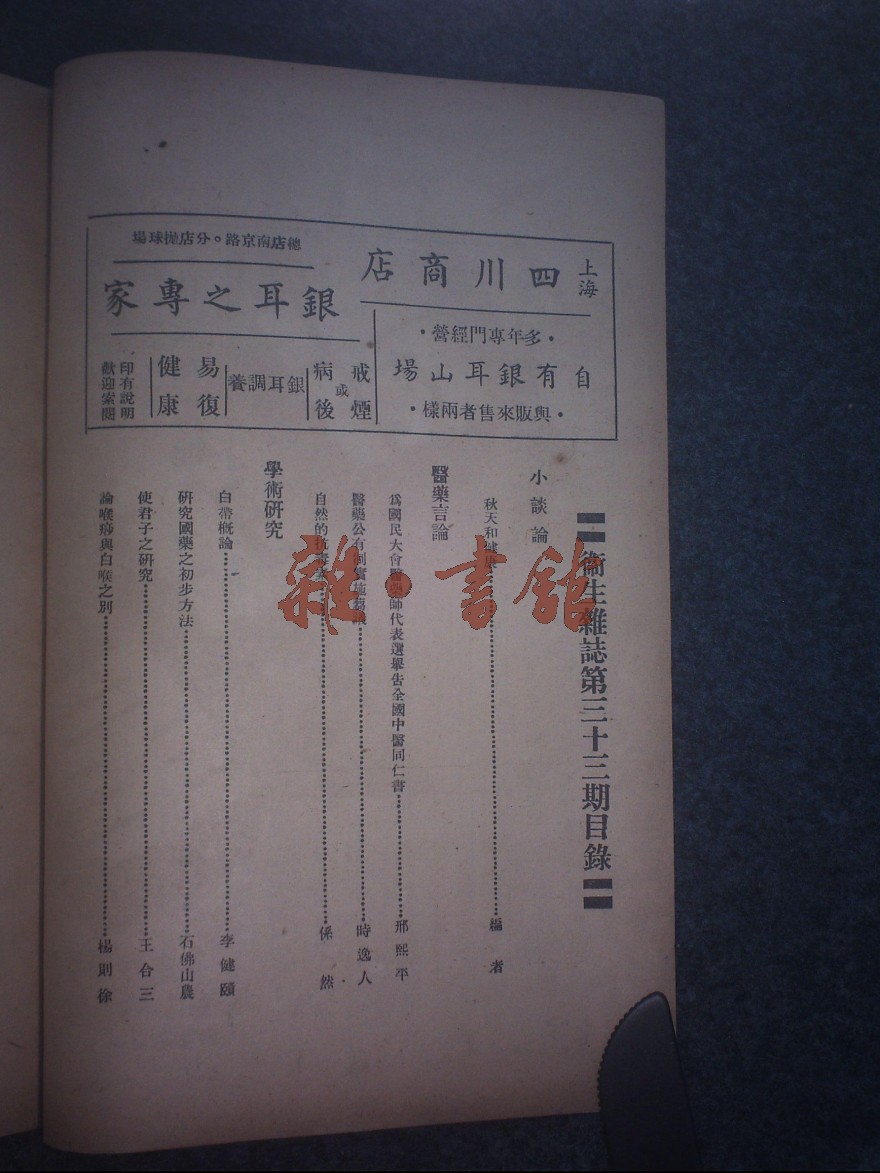 上海
四川商店
·多年專門經營·
自有銀耳山場
·與販來售者兩樣·
總店南京路。分店拋球場
銀耳之專家
戒煙
或
病後
銀耳調養
易復
健康
印有說明
歡迎索閱
衞生雜誌第三十三期目錄
小談論
秋天和健康 編者
醫藥言論
爲國民大會醫藥師代表選舉告全國中醫同仁書 邢熙平
醫藥公有制實施 時逸人
自然的抗毒素 係然
學術研究
白帶槪論 李健頤
硏究國藥之初步方法 石佛山農
使君子之研究 王合三
論喉痧與白喉之別 楊則徐
雜·書館